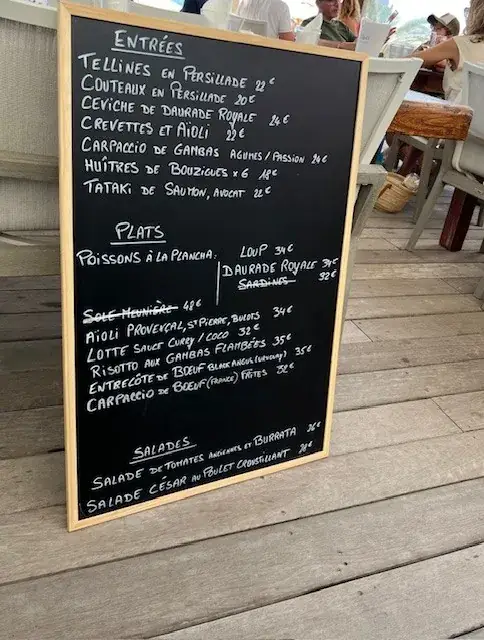 ENTRÉES
TELLINES EN PERSILLADE 22€
COUTEAUX EN PERSILLADE 20€
CEVICHE DE DAURADE ROYALE 24€
CREVETTES ET AÏOLI 22€
CARPACCIO DE GAMBAS AGUMES / PASSION 24€
HUÎTRES DE BOUZIGUES x 6 18€
TATAKI DE SAUMON, AVOCAT 22€
PLATS
POISSONS À LA PLANCHA: LOUP 34€
DAURADE ROYALE 34€
SARDINES 32€
SOLE MEUNIÈRE 48€
AÏOLI PROVENÇAL, ST PIERRE, BULOTS 34€
LOTTE SAUCE CURRY / COCO 32€
RISOTTO AUX GAMBAS FLAMBÉES 35€
ENTRECÔTE DE BOEUF BLACK ANGUS (URUGUAY) 35€
CARPACCIO DE BOEUF (FRANCE) FRITES 32€
SALADES
SALADE DE TOMATES ANCIENNES ET BURRATA 26€
SALADE CÉSAR AU POULET CROUSTILLANT